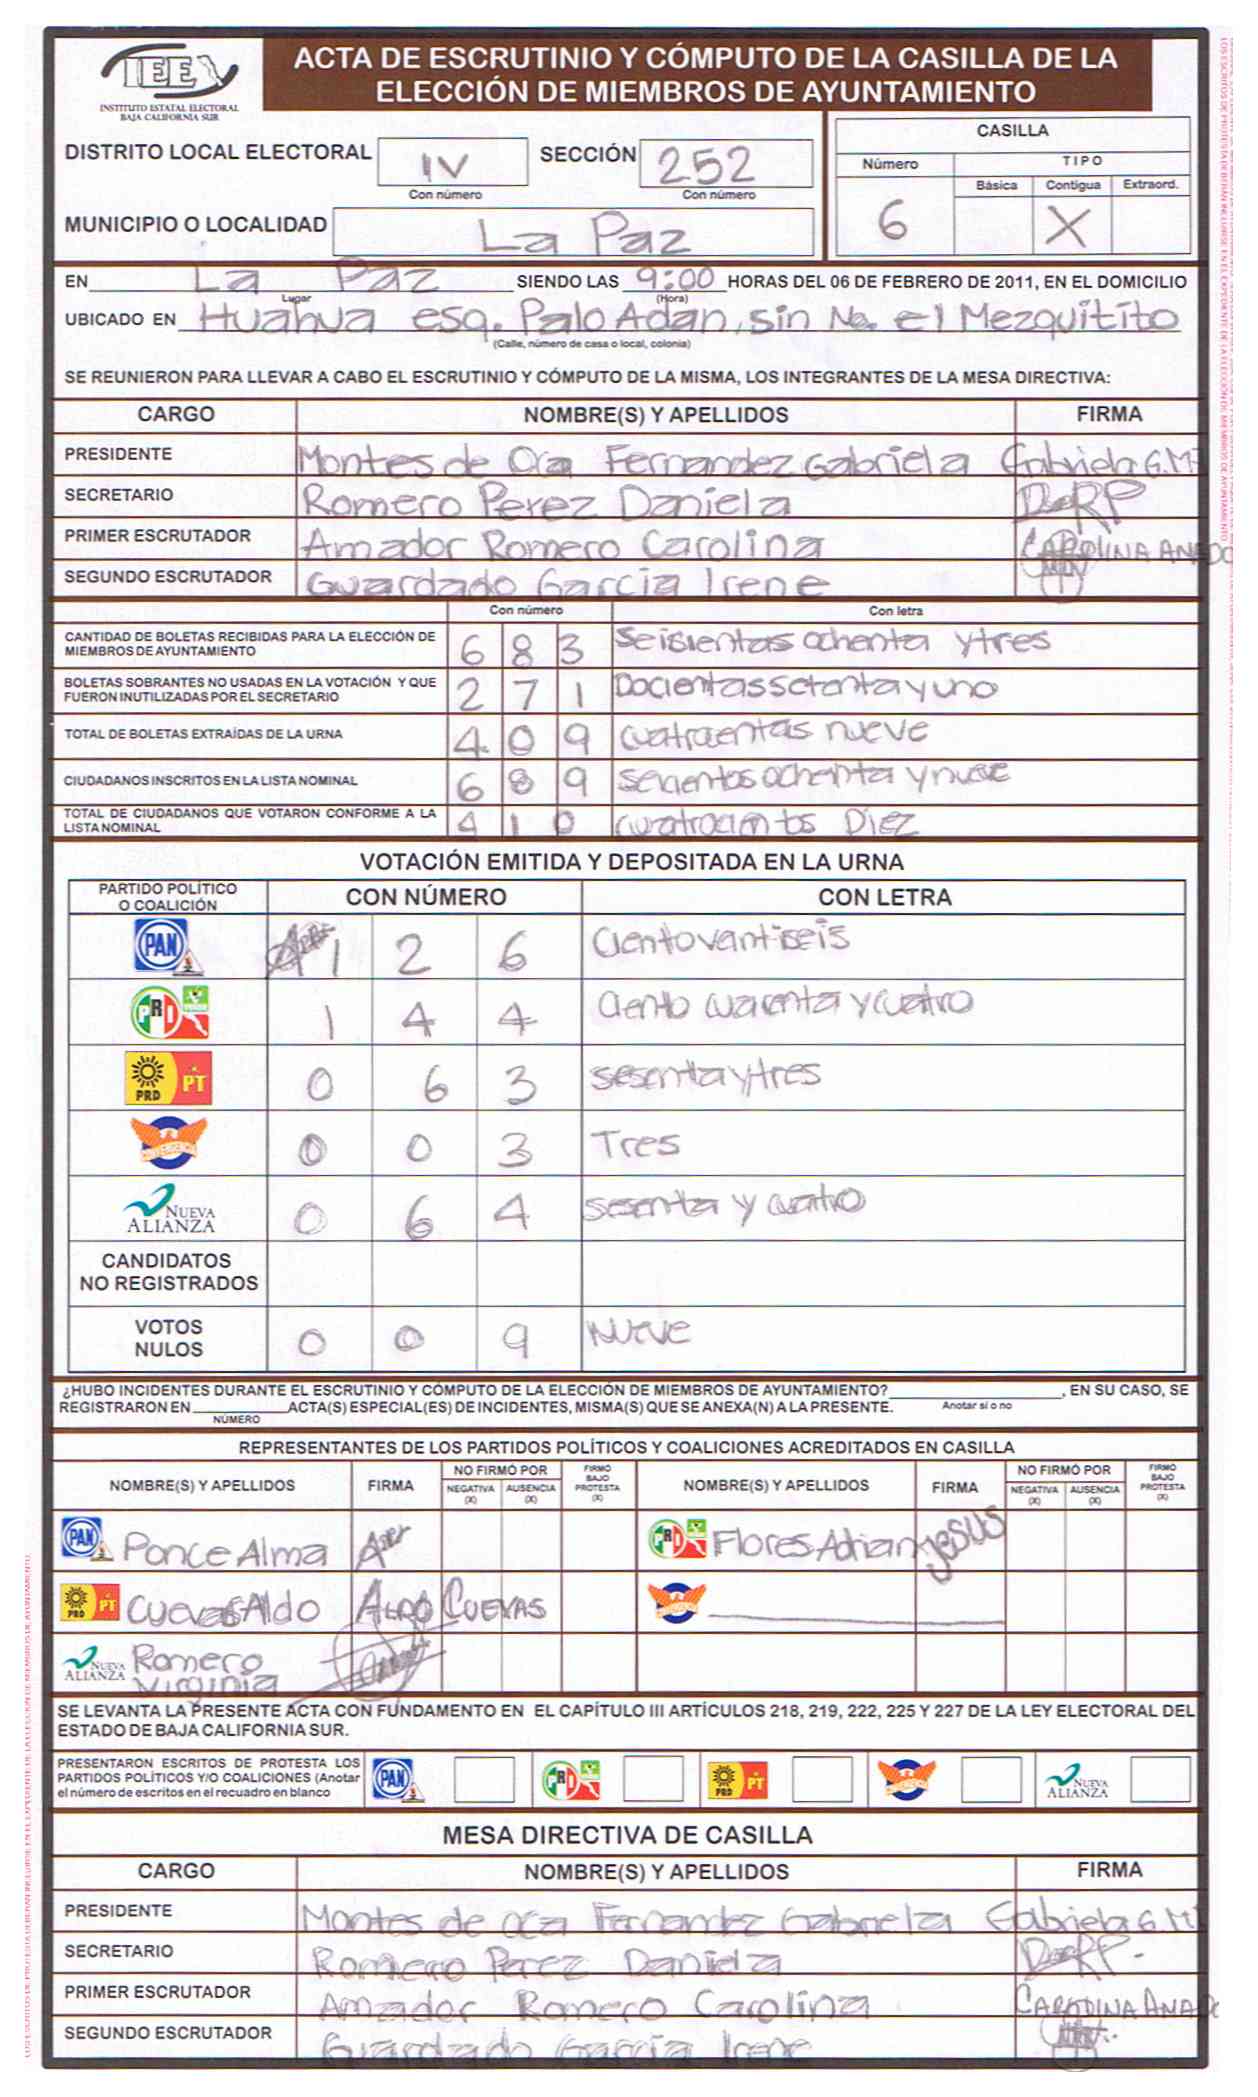 IEEX
INSTITUTO ESTATAL ELECTORAL
BAJA CALIFORNIA SUR
ACTA DE ESCRUTINIO Y CÓMPUTO DE LA CASILLA DE LA
ELECCIÓN DE MIEMBROS DE AYUNTAMIENTO
DISTRITO LOCAL ELECTORAL IV SECCIÓN 252
Con número Con número
MUNICIPIO O LOCALIDAD La Paz
CASILLA
Número TIPO
Básica Contigua Extraord.
6 X
EN La Paz SIENDO LAS 9:00 HORAS DEL 06 DE FEBRERO DE 2011, EN EL DOMICILIO
Lugar (Hora)
UBICADO EN Huahua esq. Palo Adan, sin No. el Mezquitito
(Calle, número de casa o local, colonia)
SE REUNIERON PARA LLEVAR A CABO EL ESCRUTINIO Y CÓMPUTO DE LA MISMA, LOS INTEGRANTES DE LA MESA DIRECTIVA:
CARGO NOMBRE(S) Y APELLIDOS FIRMA
PRESIDENTE Montes de Oca Fernandez Gabriela Gabriela G.M.F
SECRETARIO Romero Perez Daniela DaRP
PRIMER ESCRUTADOR Amador Romero Carolina CAROLINA AMADO
SEGUNDO ESCRUTADOR Guardado Garcia Irene
Con número Con letra
CANTIDAD DE BOLETAS RECIBIDAS PARA LA ELECCIÓN DE
MIEMBROS DE AYUNTAMIENTO 6 8 3 Seisientas ochenta y tres
BOLETAS SOBRANTES NO USADAS EN LA VOTACIÓN Y QUE
FUERON INUTILIZADAS POR EL SECRETARIO 2 7 1 Docientas setenta y uno
TOTAL DE BOLETAS EXTRAÍDAS DE LA URNA 4 0 9 cuatrocientas nueve
CIUDADANOS INSCRITOS EN LA LISTA NOMINAL 6 8 9 seicientos ochenta y nueve
TOTAL DE CIUDADANOS QUE VOTARON CONFORME A LA
LISTA NOMINAL 4 1 0 cuatrocientos Diez
VOTACIÓN EMITIDA Y DEPOSITADA EN LA URNA
PARTIDO POLÍTICO
O COALICIÓN CON NÚMERO CON LETRA
PAN 1 2 6 Ciento vantiseis
PRI 1 4 4 Ciento cuarenta y cuatro
PRD PT 0 6 3 sesenta y tres
CONVERGENCIA 0 0 3 Tres
NUEVA
ALIANZA 0 6 4 sesenta y cuatro
CANDIDATOS
NO REGISTRADOS
VOTOS
NULOS 0 0 9 NUEVE
¿HUBO INCIDENTES DURANTE EL ESCRUTINIO Y CÓMPUTO DE LA ELECCIÓN DE MIEMBROS DE AYUNTAMIENTO? , EN SU CASO, SE
REGISTRARON EN ACTA(S) ESPECIAL(ES) DE INCIDENTES, MISMA(S) QUE SE ANEXA(N) A LA PRESENTE. Anotar si o no
NÚMERO
REPRESENTANTES DE LOS PARTIDOS POLÍTICOS Y COALICIONES ACREDITADOS EN CASILLA
NOMBRE(S) Y APELLIDOS FIRMA NO FIRMÓ POR NEGATIVA (X) AUSENCIA (X) FIRMÓ BAJO PROTESTA (X) NOMBRE(S) Y APELLIDOS FIRMA NO FIRMÓ POR NEGATIVA (X) AUSENCIA (X) FIRMÓ BAJO PROTESTA (X)
PAN Ponce Alma PRI Flores Adrian JESUS
PRD PT Cuevas Aldo ALDO CUEVAS
NUEVA ALIANZA Romero
Virginia
SE LEVANTA LA PRESENTE ACTA CON FUNDAMENTO EN EL CAPÍTULO III ARTÍCULOS 218, 219, 222, 225 Y 227 DE LA LEY ELECTORAL DEL
ESTADO DE BAJA CALIFORNIA SUR.
PRESENTARON ESCRITOS DE PROTESTA LOS
PARTIDOS POLÍTICOS Y/O COALICIONES (Anotar
el número de escritos en el recuadro en blanco
PAN PRI PRD PT CONVERGENCIA NUEVA ALIANZA
MESA DIRECTIVA DE CASILLA
CARGO NOMBRE(S) Y APELLIDOS FIRMA
PRESIDENTE Montes de oca Fernandez Gabriela Gabriela G.M.F
SECRETARIO Romero Perez Daniela DaRP.
PRIMER ESCRUTADOR Amador Romero Carolina CAROLINA AMADO
SEGUNDO ESCRUTADOR Guardado Garcia Irene